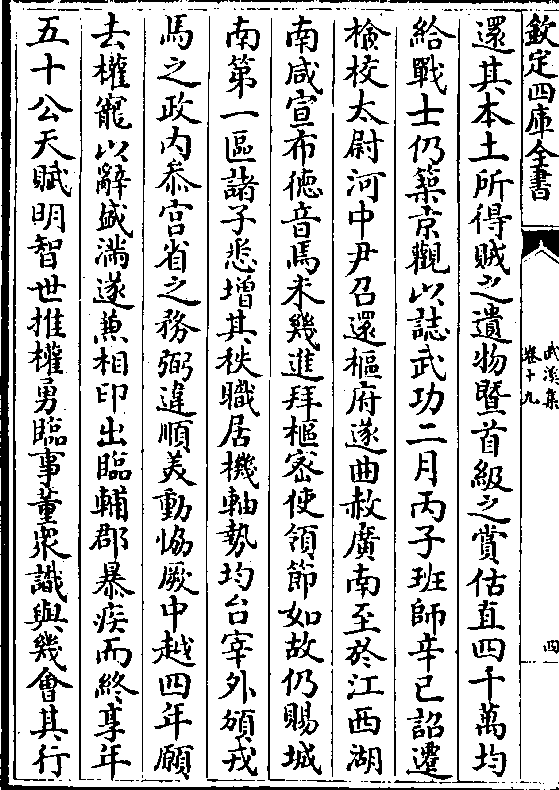 欽定四庫全書
武溪集
卷十九
四
還其本土所得賊之遺物暨首級之賞估直四千萬均
給戰士仍築京觀以誌武功二月丙子班師辛已詔遷
檢校太尉河中尹召還樞府遂曲赦廣南至於江西湖
南咸宣布徳音焉未幾進拜樞宻使領節如故仍賜城
南第一區諸子悉增其秩職居機軸勢均台宰外頒戎
馬之政内叅宫省之務弼違順美動恊厥中越四年願
去權寵以辭盛満遂兼相印出臨輔郡暴疾而終享年
五十公天賦明智世推權勇臨事董衆識與幾會其行